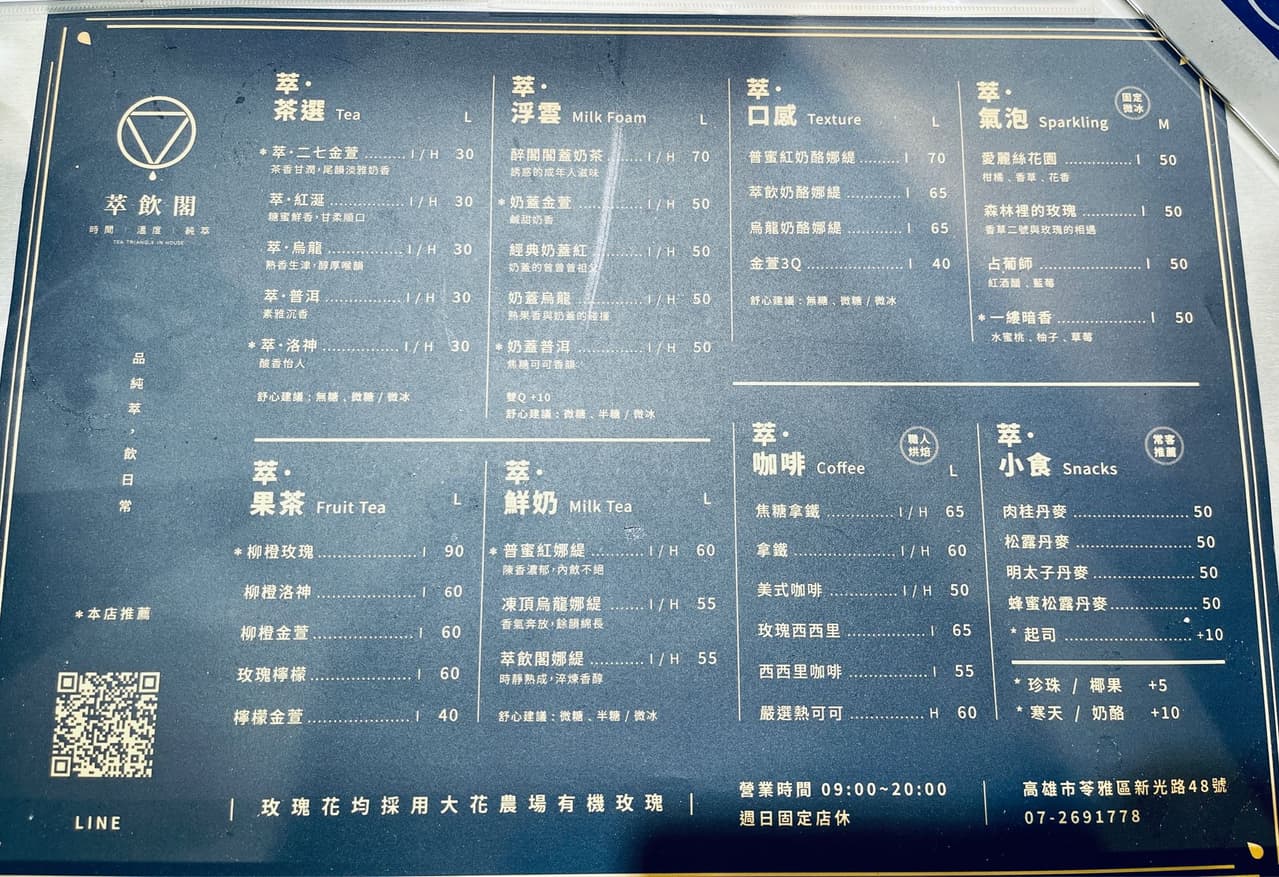 萃飲閣
時間｜溫度｜純萃
TEA TRIANGLE IN HOUSE
品純萃，飲日常
*本店推薦
LINE
萃·
茶選 Tea L
*萃·二七金萱 ........ I / H 30
茶香甘潤，尾韻淡雅奶香
萃·紅涎 ........ I / H 30
糖蜜鮮香，甘柔順口
萃·烏龍 ........ I / H 30
熟香生津，醇厚喉韻
萃·普洱 ........ I / H 30
素雅沉香
*萃·洛神 ........ I / H 30
酸香怡人
舒心建議：無糖、微糖 / 微冰
萃·
浮雲 Milk Foam L
醉閣閣蓋奶茶 ........ I / H 70
誘惑的成年人滋味
*奶蓋金萱 ........ I / H 50
鹹甜奶香
經典奶蓋紅 ........ I / H 50
奶蓋的曾曾曾祖父
奶蓋烏龍 ........ I / H 50
熟果香與奶蓋的碰撞
*奶蓋普洱 ........ I / H 50
焦糖可可香韻
雙Q +10
舒心建議：微糖、半糖 / 微冰
萃·
口感 Texture L
普蜜紅奶酪娜緹 ........ I 70
萃飲奶酪娜緹 ........ I 65
烏龍奶酪娜緹 ........ I 65
金萱3Q ........ I 40
舒心建議：無糖、微糖 / 微冰
萃·
氣泡 Sparkling 固定微冰 M
愛麗絲花園 ........ I 50
柑橘、香草、花香
森林裡的玫瑰 ........ I 50
香草二號與玫瑰的相遇
占葡師 ........ I 50
紅酒醋、藍莓
*一縷暗香 ........ I 50
水蜜桃、柚子、草莓
萃·
果茶 Fruit Tea L
*柳橙玫瑰 ........ I 90
柳橙洛神 ........ I 60
柳橙金萱 ........ I 60
玫瑰檸檬 ........ I 60
檸檬金萱 ........ I 40
萃·
鮮奶 Milk Tea L
*普蜜紅娜緹 ........ I / H 60
陳香濃郁，內斂不絕
凍頂烏龍娜緹 ........ I / H 55
香氣奔放，餘韻綿長
萃飲閣娜緹 ........ I / H 55
時靜熟成，淬煉香醇
舒心建議：微糖、半糖 / 微冰
萃·
咖啡 Coffee 職人烘焙 L
焦糖拿鐵 ........ I / H 65
拿鐵 ........ I / H 60
美式咖啡 ........ I / H 50
玫瑰西西里 ........ I 65
西西里咖啡 ........ I 55
嚴選熱可可 ........ H 60
萃·
小食 Snacks 常客推薦
肉桂丹麥 ........ 50
松露丹麥 ........ 50
明太子丹麥 ........ 50
蜂蜜松露丹麥 ........ 50
*起司 ........ +10
*珍珠 / 椰果 +5
*寒天 / 奶酪 +10
｜玫瑰花均採用大花農場有機玫瑰｜
營業時間 09:00~20:00
週日固定店休
高雄市苓雅區新光路48號
07-2691778